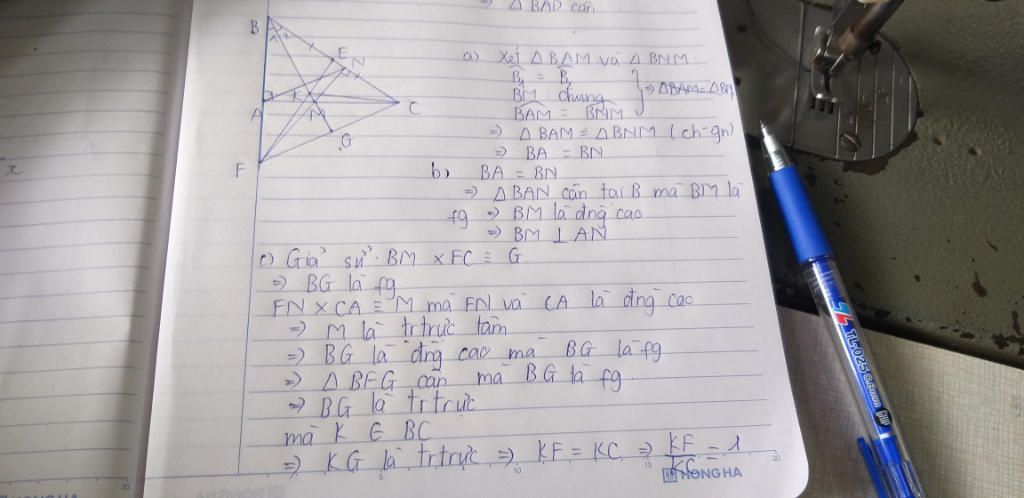 => Δ BAD cân
B
E
N
A
K
M
C
G
F
x
a) Xét Δ BAM và Δ BNM:
B₁ = B₂
BM: chung
BAM = BNM
=> ΔBAM = ΔBNM
=> Δ BAM = Δ BNM (ch-gn)
=> BA = BN
b) BA = BN
=> Δ BAN cân tại B mà BM là
fg => BM là đng cao
=> BM ⊥ AN
c) Giả sử: BM × FC ≡ G
=> BG là fg
FN × CA ≡ M mà FN và CA là đng cao
=> M là trtrực tâm
=> BG là đng cao mà BG là fg
=> Δ BFG cân mà BG là fg
=> BG là trtrực
mà K ∈ BC
=> KG là trtrực => KF = KC => KF/KC = 1
5
10
15
20
HONG HA
20
TL 025